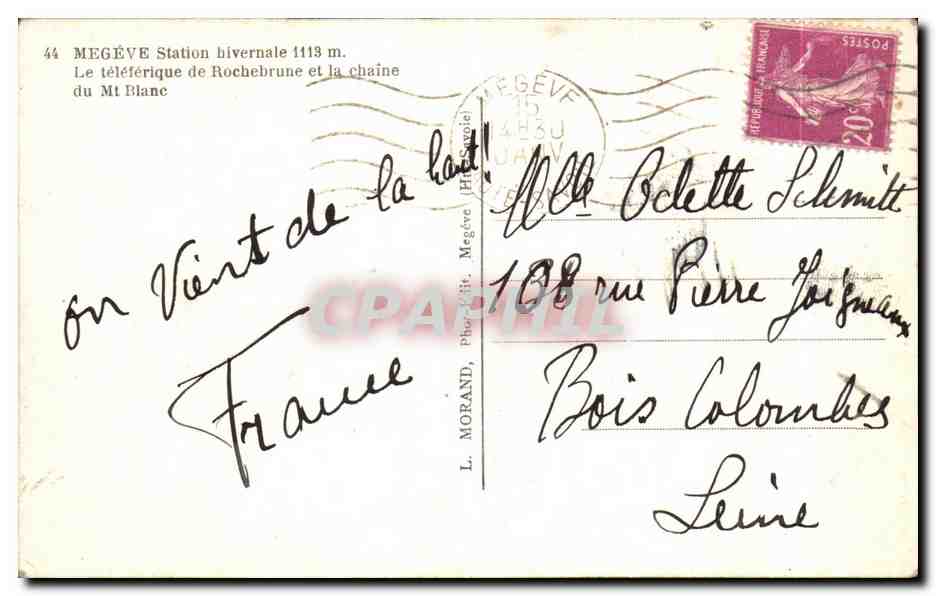 44 MEGÉVE Station hivernale 1113 m.
Le téléférique de Rochebrune et la chaîne
du Mt Blanc
MEGÉVE
15
14H30
JANV
RÉPUBLIQUE FRANÇAISE
POSTES
20c
on Vient de la haut!
France
L. MORAND, Phot-Edit. Megéve (Hte-Savoie)
Mlle Odette Schmitt
138 rue Pierre Joigneaux
Bois Colombes
Seine
CPAPHIL